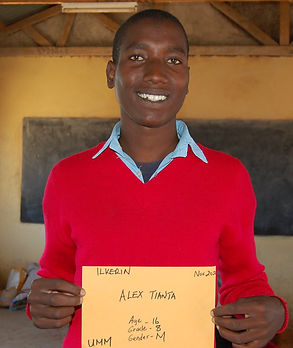 ILKERIN Nov.202
ALEX TIANTA
Age - 16
Grade - 8
UMM Gender - M